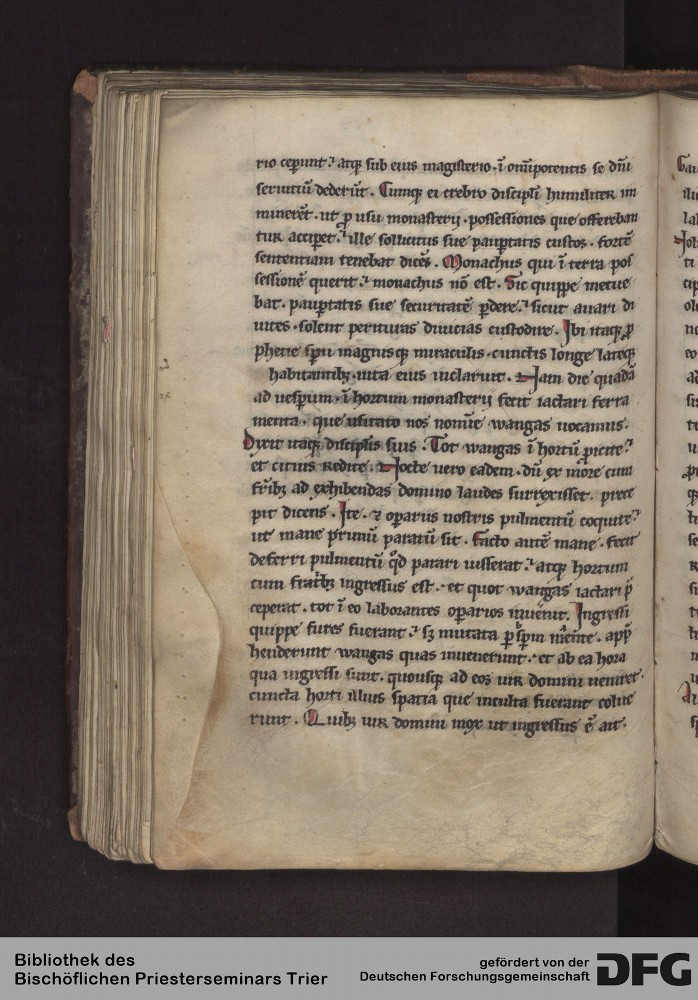 rio ceperunt. atq; sub eius magisterio. ī omīpotentis se dn̄i
seruitiū dederūt. Cumq; ei crebro discipli humiliter im
minerēt. ut ꝓ usu monasterij. possessiones que offereban
tur acciperet. ille sollicitus sue paupertatis custos. fortē
sententiam tenebat dicēs. Monachus qui ī terra pos
sessionē querit. monachus nō est. Sic quippe metue
bat. paupertatis sue securitatē ꝑdere. sicut auari di
uites. solent perituras diuicias custodire. Ibi itaq; ꝓ
phetie spū magnisq; miraculis. cunctis longe lateq;
habitantib; uita eius inclaruit. Nam die quadā
ad uesperum. ī hortum monasterij fecit iactari ferra
menta. que usitato nos nomine wangas uocamus.
Dixit itaq; disciplis suis. Tot wangas ī hortū ꝓicite.
et citius redite. Nocte uero eadem. dū ex more cum
frīb; ad exhibendas domino laudes surrexisset. prece
pit dicens. Ite. ⁊ operarijs nostris pulmentū coquite.
ut mane primū paratū sit. Facto autē mane. fecit
deferri pulmentū qd̄ parari iusserat. atq; hortum
cum fratrib; ingressus est. et quot wangas iactari p̄
ceperat. tot ī eo laborantes operarios inuenit. Ingressi
quippe fures fuerant. sꝫ mutata ꝑ spm̄ mente. app̄
henderunt wangas quas inuenerunt. et ab ea hora
qua ingressi sunt. quousq; ad eos uir domini ueniret.
cuncta horti illius spacia que inculta fuerant colue
runt. Quib; uir domini mox ut ingressus ē ait.
Bibliothek des
Bischöflichen Priesterseminars Trier
gefördert von der
Deutschen Forschungsgemeinschaft
DFG